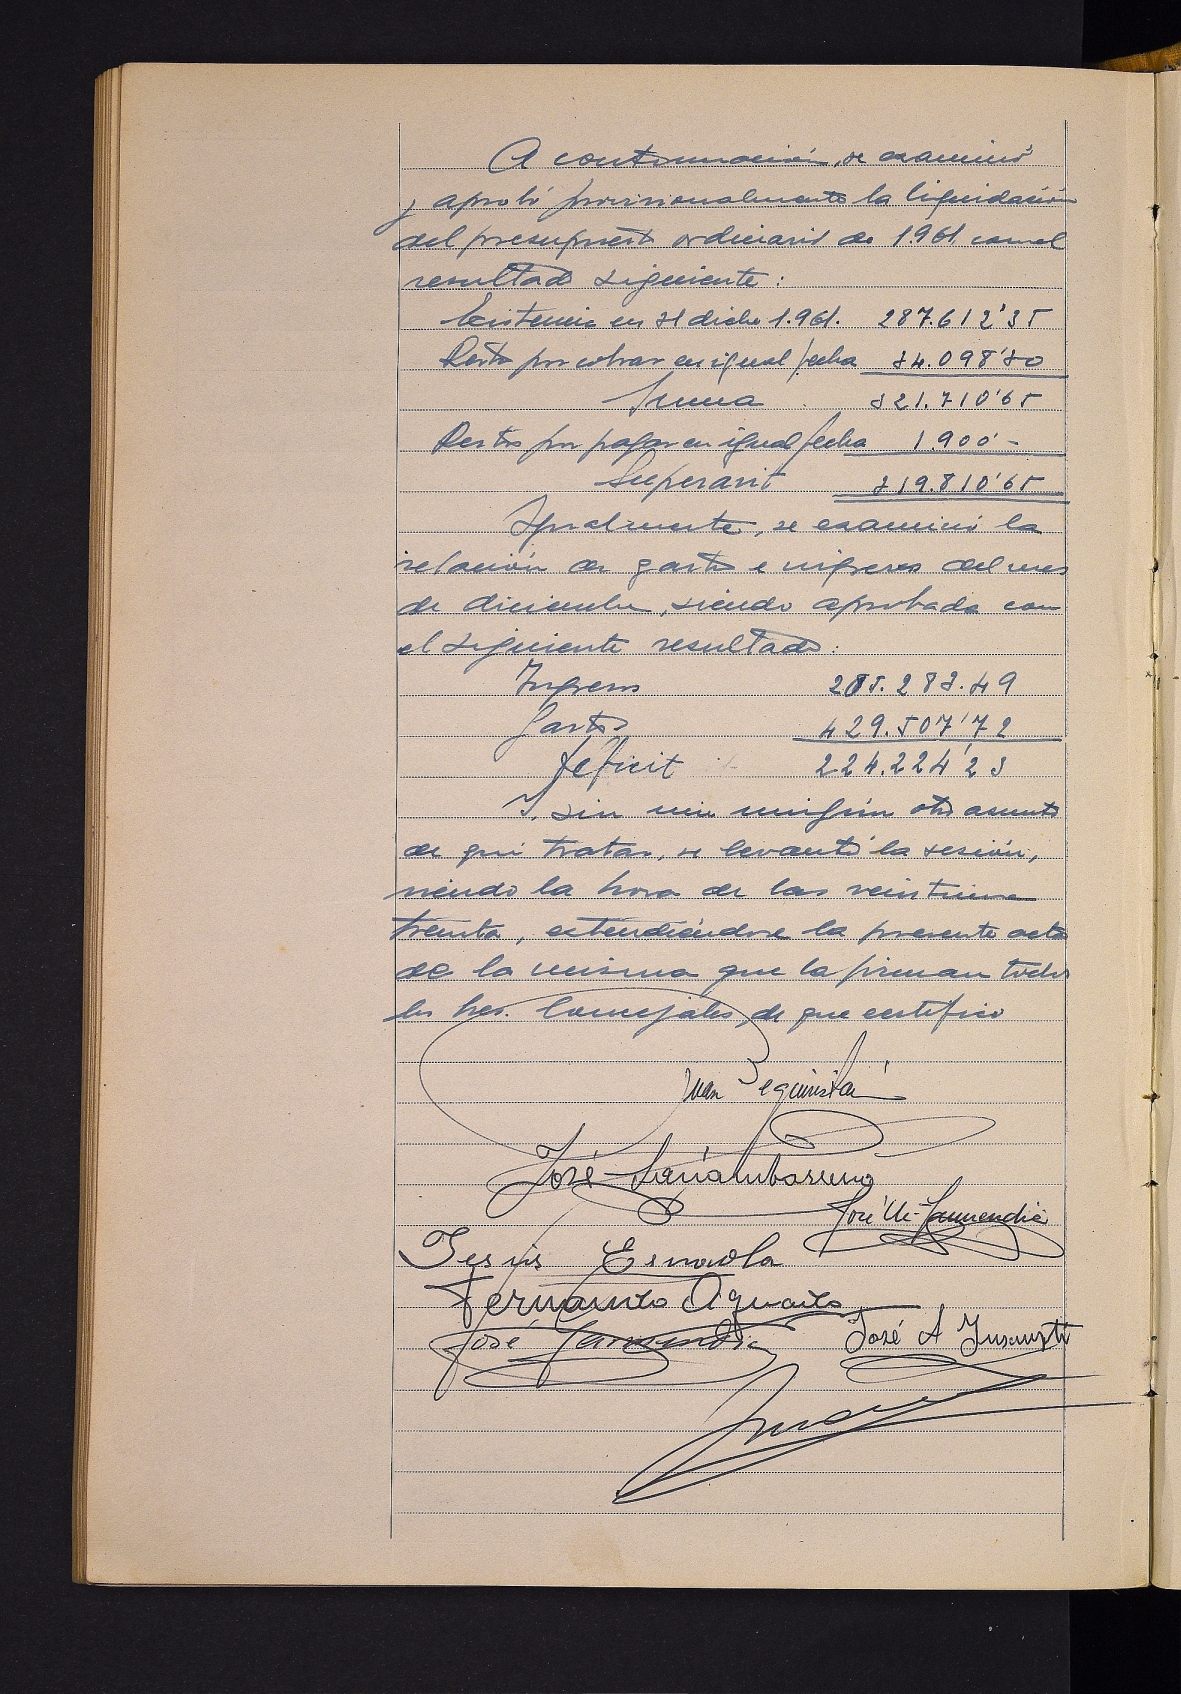 A continuación, se examinó
y aprobó provisionalmente la liquidación
del presupuesto ordinario de 1.961 con el
resultado siguiente:
Existencia en 31 dicbre 1.961. 287.612'35
Resto por cobrar en igual fecha 34.098'30
Suma 321.710'65
Restos por pagar en igual fecha 1.900'-
Superavit 319.810'65
Igualmente, se examinó la
relación de gastos e ingresos del mes
de diciembre, siendo aprobada con
el siguiente resultado:
Ingresos 205.283.49
Gastos 429.507'72
Déficit 224.224'23
Y sin ningún otro asunto
de qué tratar, se levantó la sesión,
siendo la hora de las veintiuna
treinta, extendiéndose la presente acta
de la misma que la firman todos
los Sres. Concejales, de que certifico
Juan Beguiristain
José
José M. Garmendia
Jesús Esnaola
Fernando
José Garmendia
José A Insausti